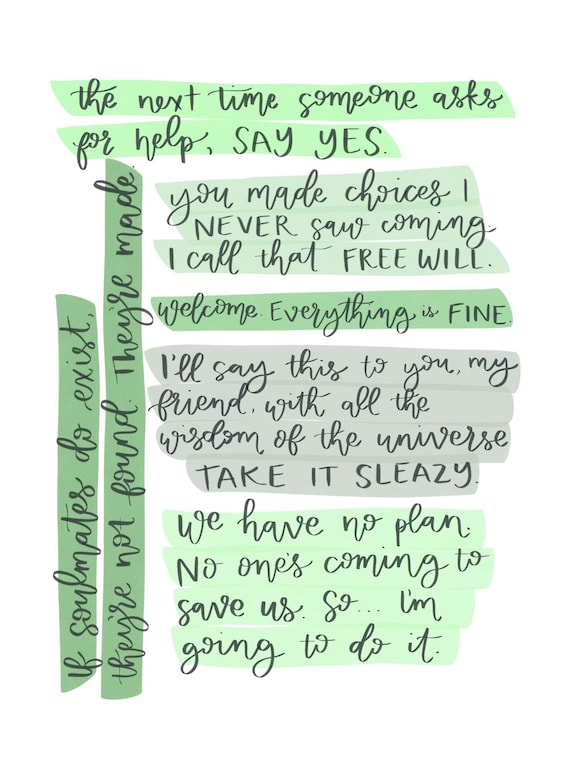 the next time someone asks
for help, SAY YES.
If soulmates do exist,
they're not found. They're made.
you made choices I
NEVER saw coming
I call that FREE WILL.
Welcome. Everything is FINE.
I'll say this to you, my
friend, with all the
wisdom of the universe
TAKE IT SLEAZY.
We have no plan.
No one's coming to
save us. So... I'm
going to do it.